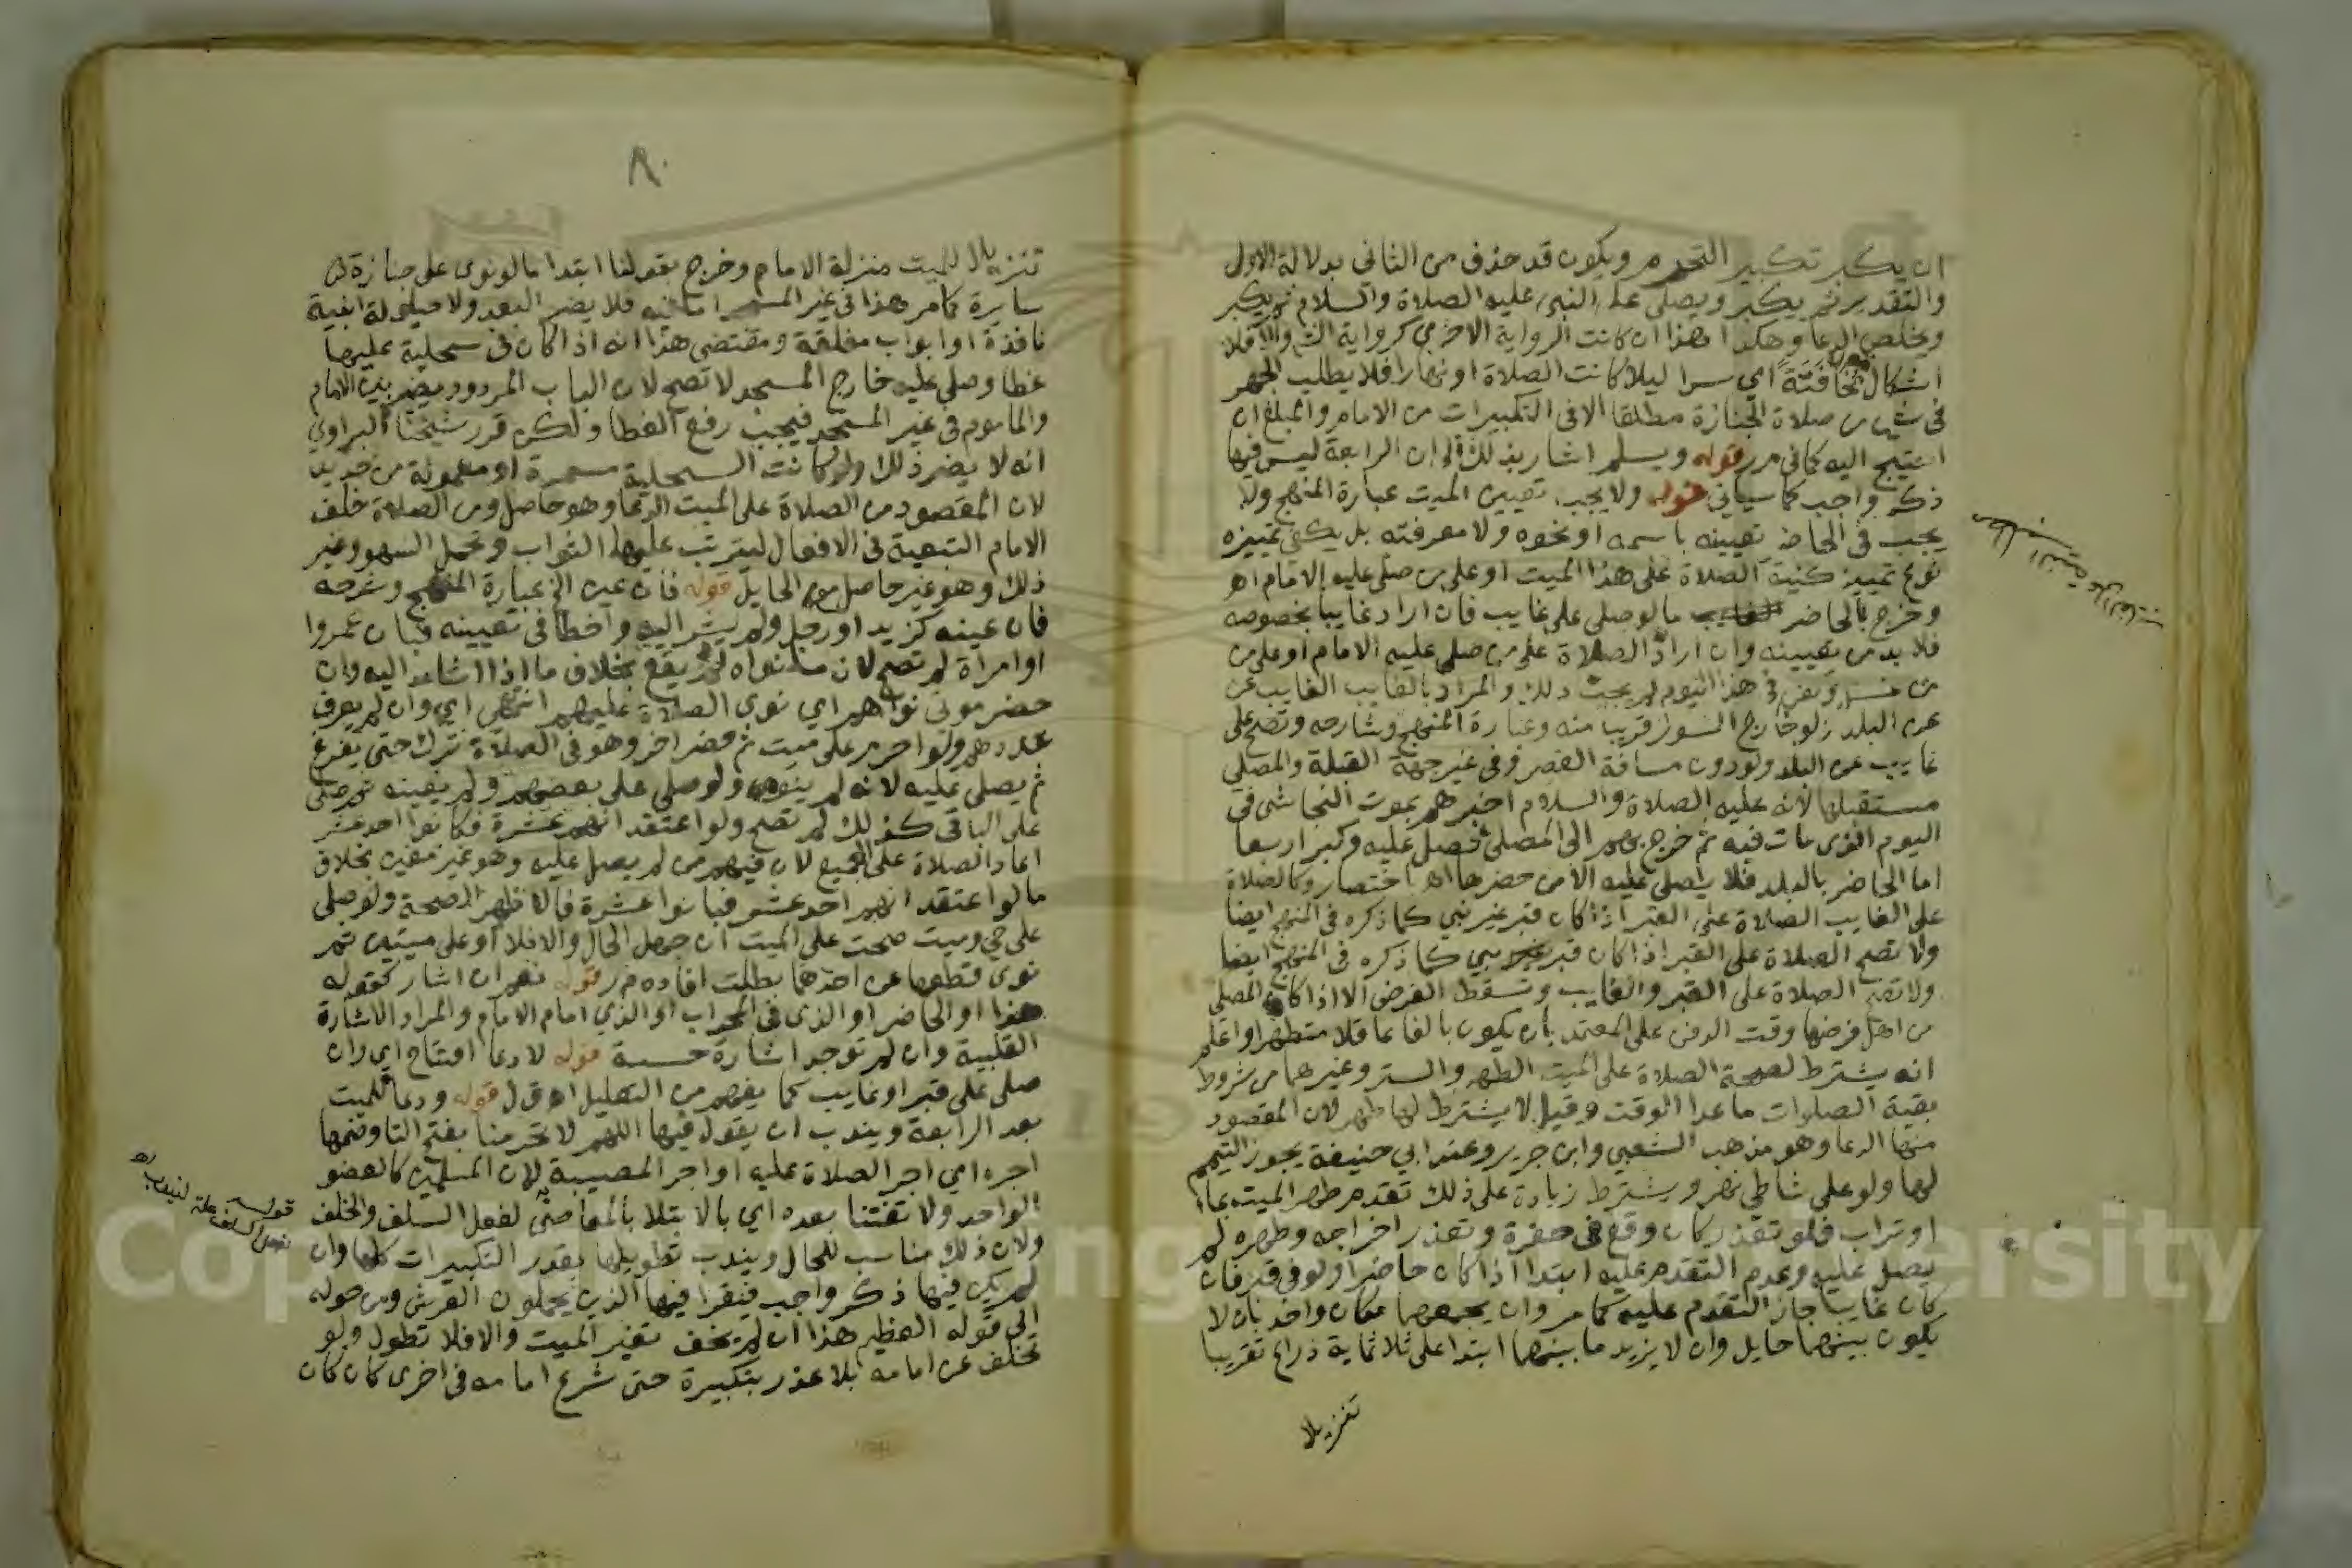 ان يكبر تكبير التحرم ويكون قد حذف من الثاني بدلالة الاول
والتقدير ثم يكبر ويصلى على النبي عليه الصلاة والسلام ثم يكبر
ويخلص الدعا وهكذا هذا ان كانت الرواية الاخرى كرواية الش والا فلا
اشكال مخافتة اي سرا ليلا كانت الصلاة او نهارا فلا يطلب الجهر
في شي من صلاة الجنازة مطلقا الا في التكبيرات من الامام والمبلغ ان
احتيج اليه كما في مر قوله ويسلم اشار بذلك الى ان الرابعة ليس فيها
ذكر واجب كما سياتي قوله ولا يجب تعيين الميت عبارة المنهج ولا
يجب في الحاضر تعيينه باسمه او نحوه ولا معرفته بل يكفي تمييزه
نوع تمييز كنية الصلاة على هذا الميت او على من صلى عليه الامام اه
وخرج بالحاضر ما لو صلى على غايب فان اراد غايبا بخصوصه
فلا بد من تعيينه وان اراد الصلاة على من صلى عليه الامام او على من
في هذا اليوم لم يجب ذلك والمراد بالغايب الغايب عن
عن البلد ولو خارج السور قريبا منه وعبارة المنهج وشارحه وتصح على
غايب عن البلد ولو دون مسافة القصر وفي غير جهة القبلة والمصلي
مستقبلها لانه عليه الصلاة والسلام اخبرهم بموت النجاشي في
اليوم الذي مات فيه ثم خرج بهم الى المصلى فصلى عليه وكبر اربعا
اما الحاضر بالبلد فلا يصلى عليه الا من حضرها اه باختصار وكالصلاة
على الغايب الصلاة على القبر اذا كان قبر غير نبي كما ذكره في المنهج ايضا
ولا تصح الصلاة على القبر اذا كان قبر نبي كما ذكره في المنهج ايضا
ولا تصح الصلاة على القبر والغايب وتسقط الفرض الا اذا كان المصلى
من اهل فرضها وقت الدفن على المعتمد بان يكون بالغا عاقلا متطهرا واعلم
انه يشترط لصحة الصلاة على الميت الطهر والستر وغيرهما من شروط
بقية الصلوات ما عدا الوقت وقيل لا يشترط لها طهر لان المقصود
منها الدعا وهو مذهب الشعبي وابن جرير وعند ابي حنيفة يجوز التيمم
لها ولو على شاطي نهر ويشترط زيادة على ذلك تقدم طهر الميت بماء
او تراب فلو تعذر كان وقع في حفرة وتعذر اخراجه وطهره لم
يصل عليه وعدم التقدم عليه ابتدا اذا كان حاضرا ولو في قبر فان
كان غايبا جاز التقدم عليه كما مر وان يجمعهما مكان واحد بان لا
يكون بينهما حايل وان لا يزيد ما بينهما ابتدا على ثلاثماية ذراع تقريبا
تنزيلا
٨٠
تنزيلا للميت منزلة الامام وخرج بقولنا ابتدا ما لو نوى على جنازة
سايرة كما مر هذا في غير المسجد اما فيه فلا يضر البعد ولا حيلولة ابنية
نافذة او ابواب مغلقة ومقتضى هذا انه اذا كان في سحلية عليها
غطا وصلى عليه خارج المسجد لا تصح لان الباب المردود يضر بين الامام
والماموم في غير المسجد فيجب رفع الغطا ولكن قرر شيخنا البراوي
انه لا يضر ذلك ولو كانت السحلية مسمرة او معمولة من حديد
لان المقصود من الصلاة على الميت الدعا وهو حاصل ومن الصلاة خلف
الامام التبعية في الافعال ليترتب عليها الثواب وتحمل السهو وغير
ذلك وهو غير حاصل مع الحايل قوله فان عين الخ عبارة المنهج وشرحه
فان عينه كزيد او رجل ولم يشر اليه واخطا في تعيينه فبان عمروا
او امراة لم تصح لان ما نواه لم يقع بخلاف ما اذا اشار اليه وان
حضر موتى نواهم اي نوى الصلاة عليهم انتهى اي وان لم يعرف
عددهم ولو احرم على ميت ثم حضر اخر وهو في الصلاة ترك حتى يفرغ
ثم يصلى عليه لانه لم ينوه ولو صلى على بعضهم ولم يعينه ثم صلى
على الباقي كذلك لم تصح ولو اعتقد انهم عشرة فكانوا احد عشر
اعاد الصلاة على الجميع لان فيهم من لم يصل عليه وهو غير معين بخلاف
ما لو اعتقد انهم احد عشر فبانوا عشرة فالاظهر الصحة ولو صلى
على حي وميت صحت على الميت ان جهل الحال والا فلا او على ميتين ثم
نوى قطعها عن احدهما بطلت افاده مر قوله نعم ان اشار كقوله
هذا او الحاضر او الذي في المحراب او الذي امام الامام والمراد الاشارة
القلبية وان لم توجد اشارة حسية قوله لا دعا افتتاح اي وان
صلى على قبر او غايب كما يفهم من التعليل اه ق ل قوله ودعا للميت
بعد الرابعة ويندب ان يقول فيها اللهم لا تحرمنا بفتح التا وضمها
اجره اي اجر الصلاة عليه او اجر المصيبة لان المسلمين كالعضو
الواحد ولا تفتنا بعده اي بالابتلا بالمعاصي لفعل السلف والخلف
ولان ذلك مناسب للحال ويندب تطويلها بقدر التكبيرات كلها وان
لم يكن فيها ذكر واجب فيقرا فيها الذين يحملون العرش ومن حوله
الى قوله العظيم هذا ان لم يخف تغير الميت والا فلا تطول ولو
تخلف عن امامه بلا عذر بتكبيرة حتى شرع امامه في اخرى كان كان